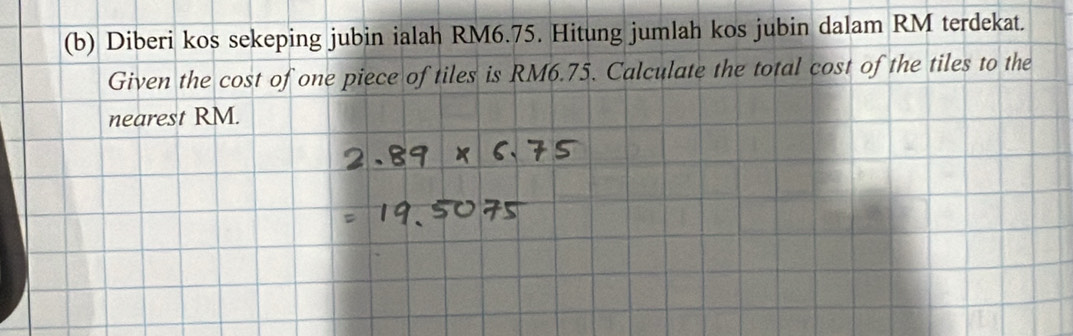 (b) Diberi kos sekeping jubin ialah RM6.75. Hitung jumlah kos jubin dalam RM terdekat.
Given the cost of one piece of tiles is RM6.75. Calculate the total cost of the tiles to the
nearest RM.
2.89 x 6.75
= 19.5075